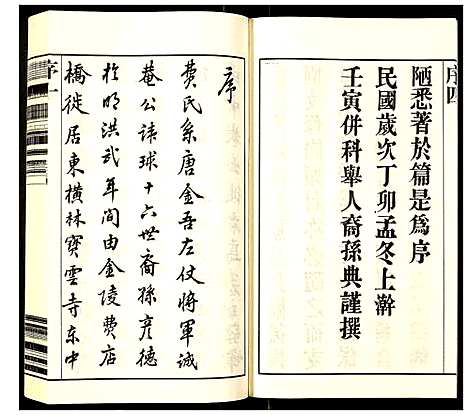 序四
陋悉著於篇是為序
民國歲次丁卯孟冬上澣
壬寅併科舉人裔孫典謹撰
序
費氏系唐金吾左仗將軍誠
菴公諱球十六世裔孫彥德
於明洪武年間由金陵費店
橋徙居東橫林寶雲寺東中
序一